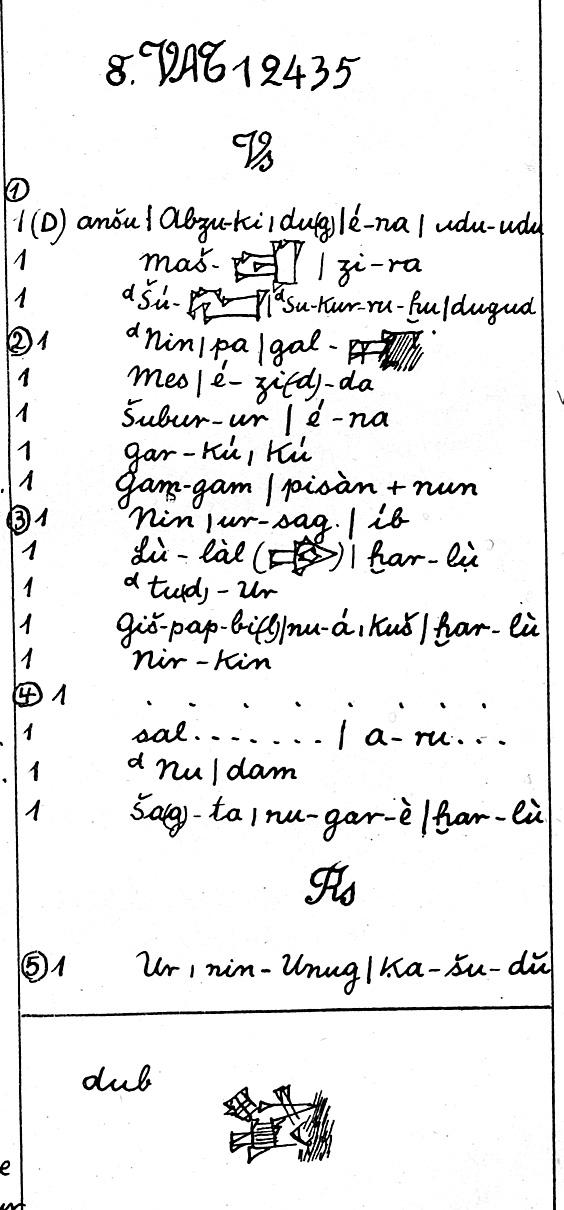 8. VAT 12435
Vs
① 
1 (D) anšu | Abzu-ki ı du(g) | é-na | udu-udu
1 maš- | zi-ra
1 ᵈŠú- | ᵈSu-kur-ru-ḫu | dugud
② 1 ᵈNin | pa | gal -
1 Mes | é- zi(d)-da
1 Šubur-ur | é-na
1 gar-kú ı kú
1 gam-gam | pisàn + nun
③ 1 Nin ı ur-sag. | íb
1 Lù-làl ( ) | ḫar-lù
1 ᵈtu(d)-ur
1 Giš-pap-bi(l) | nu-á ı kuš | ḫar-lù
1 Nir-kin
④ 1 . . . . . . . . .
1 sal. . . . . . . | a-ru. . .
1 ᵈNu | dam
1 ša(g)-ta ı nu-gar-è | ḫar-lù
Rs
⑤ 1 Ur ı nin-Unug | Ka-šu-dŭ
dub